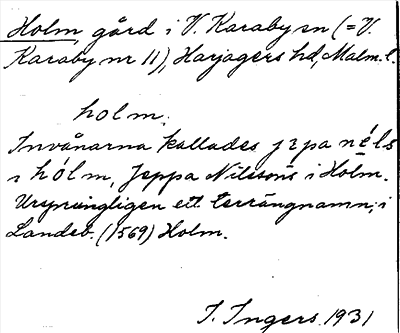 Holm, gård i V. Karaby sn (=V.
Karaby nr 11), Harjagers hd, Malm. l.
holm.
Invånarna kallades jɛpa néls
ɪ hólm, Jeppa Nilssons i Holm.
Ursprungligen ett terrängnamn; i
Landeb. (1569) Holm.
I. Ingers 1931